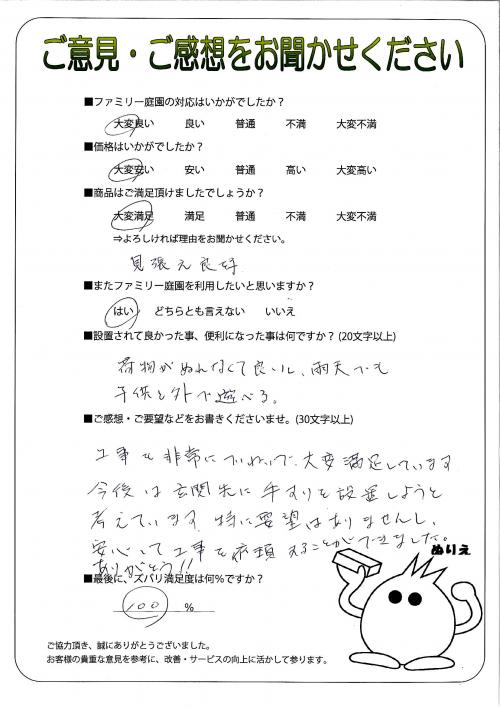 ご意見・ご感想をお聞かせください
■ファミリー庭園の対応はいかがでしたか？
大変良い 良い 普通 不満 大変不満
■価格はいかがでしたか？
大変安い 安い 普通 高い 大変高い
■商品はご満足頂けましたでしょうか？
大変満足 満足 普通 不満 大変不満
⇒よろしければ理由をお聞かせください。
良好
■またファミリー庭園を利用したいと思いますか？
はい どちらとも言えない いいえ
■設置されて良かった事、便利になった事は何ですか？(20文字以上)
荷物がぬれなくて良いし、雨天でも
子供と外で遊べる。
■ご感想・ご要望などをお書きくださいませ。(30文字以上)
工事も非常にていねいで、大変満足しています
今後は玄関先に手すりを設置しようと
考えています 特に要望はありませんし、
安心して工事を依頼することができました。
ありがとう!!
ぬりえ
■最後に、ズバリ満足度は何%ですか？
100 %
ご協力頂き、誠にありがとうございました。
お客様の貴重な意見を参考に、改善・サービスの向上に活かして参ります。